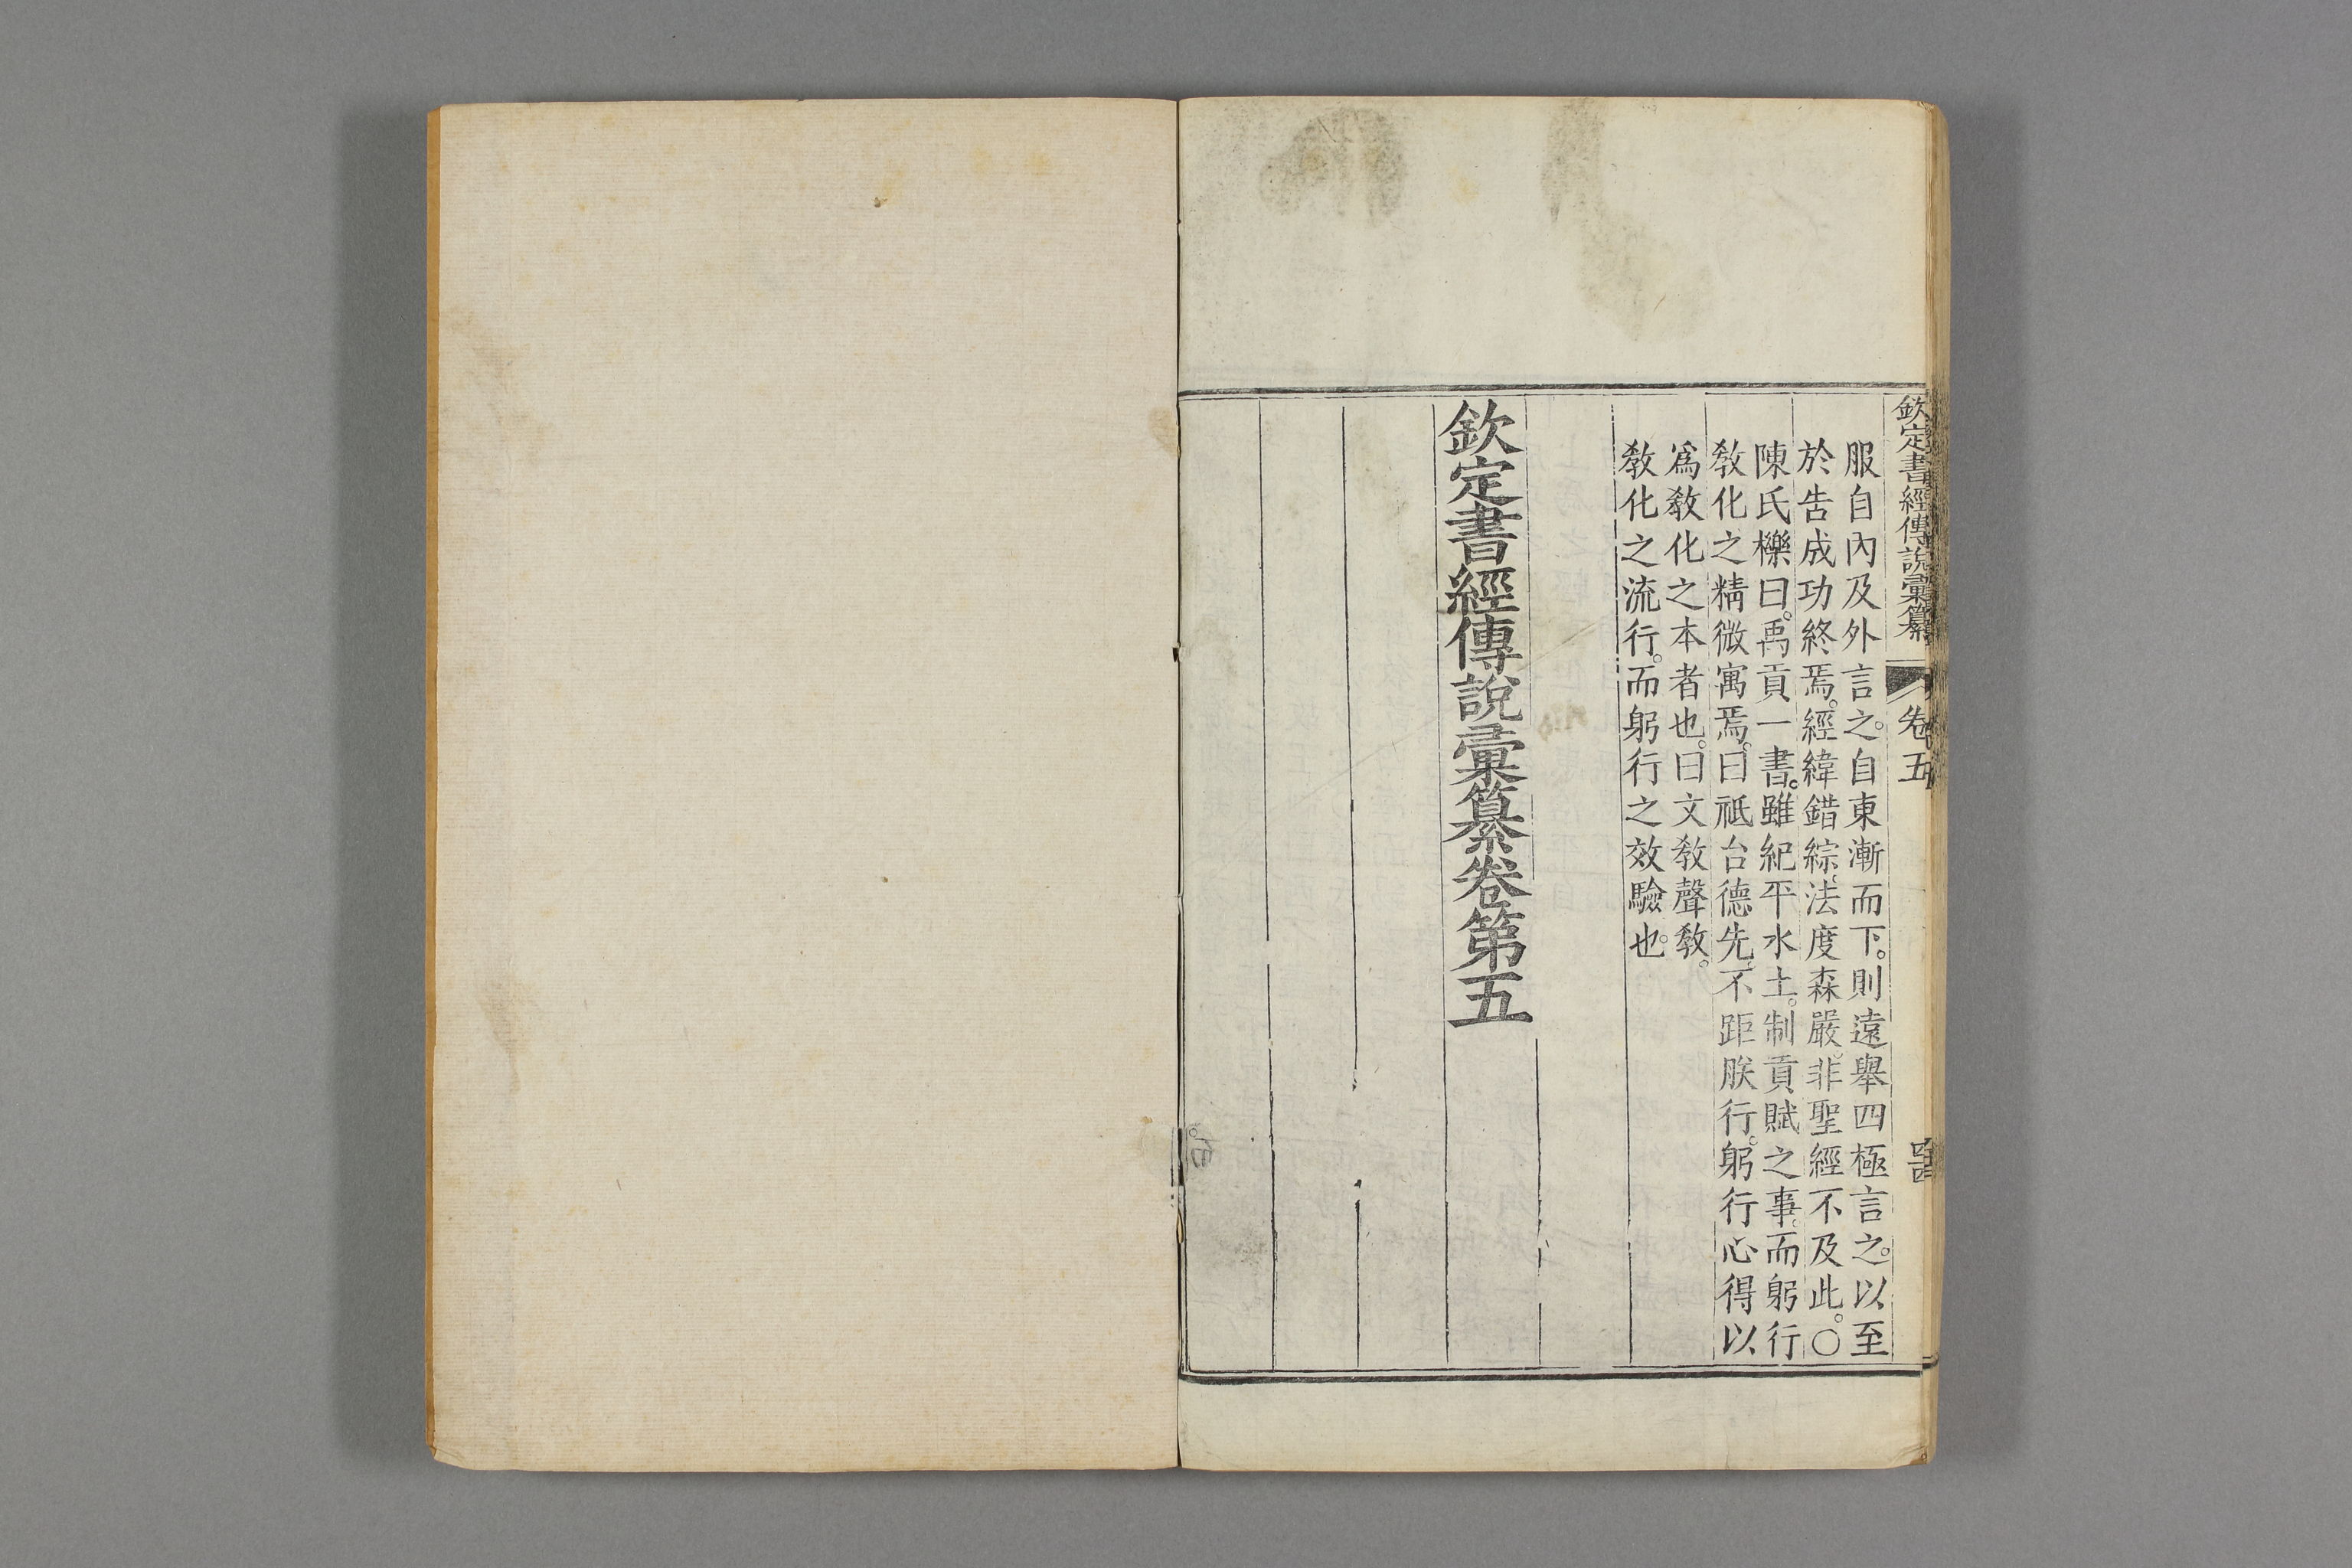 欽定書經傳說彙纂 卷五
服自內及外言之。自東漸而下。則遠舉四極言之。以至
於告成功終焉。經緯錯綜。法度森嚴。非聖經不及此。○
陳氏櫟曰。禹貢一書。雖紀平水土。制貢賦之事。而躬行
敎化之精微寓焉。曰祗台德先。不距朕行。躬行心得以
爲敎化之本者也。曰文敎聲敎。
敎化之流行。而躬行之效驗也。
欽定書經傳說彙纂卷第五